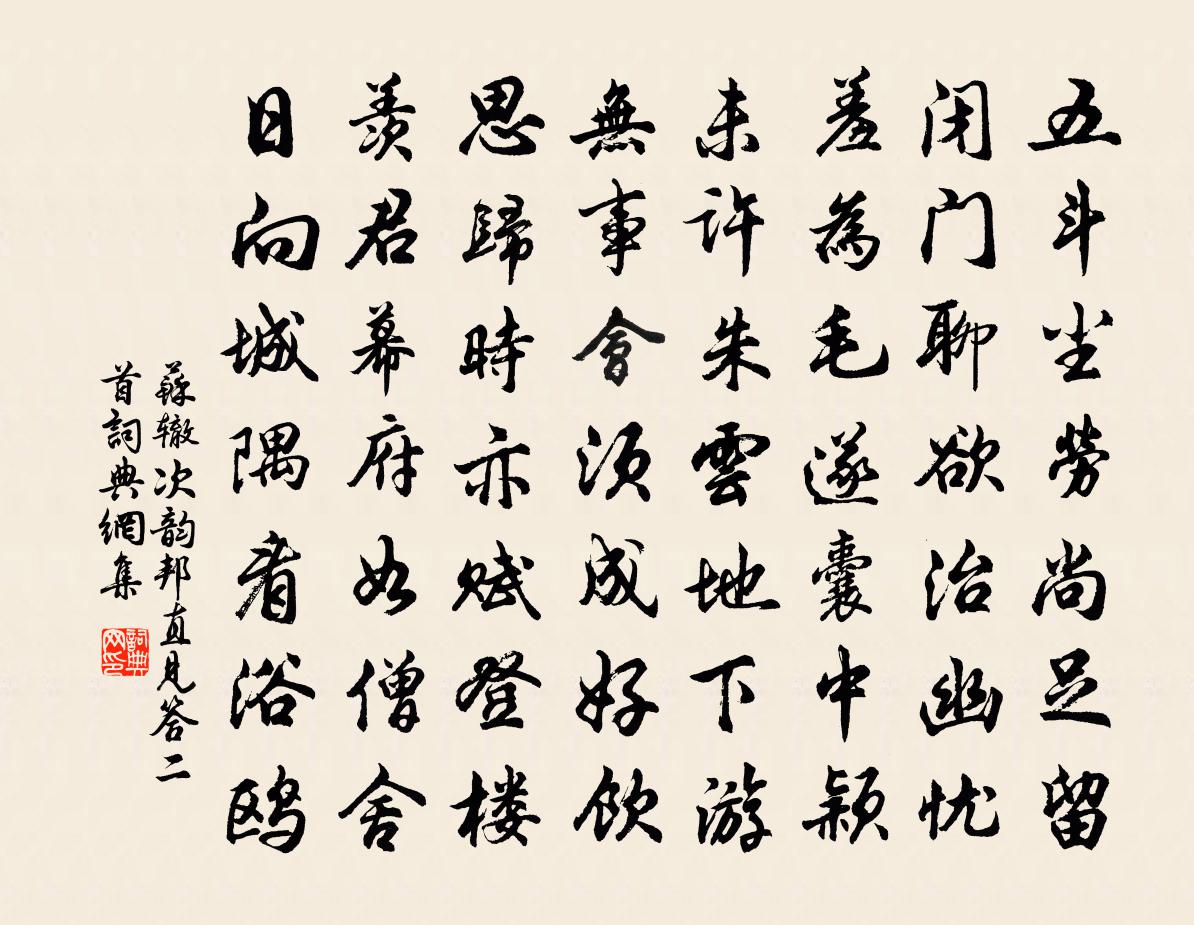 五斗尘勞尚足留
闭门聊欲治幽忧
羞為毛遂囊中颖
未许朱雲地下游
無事會须成好飲
思歸時亦赋登楼
羨君幕府如僧舍
日向城隅看浴鸥
蘇辙次韵邦直見答二
首詞典網集
詞典网印